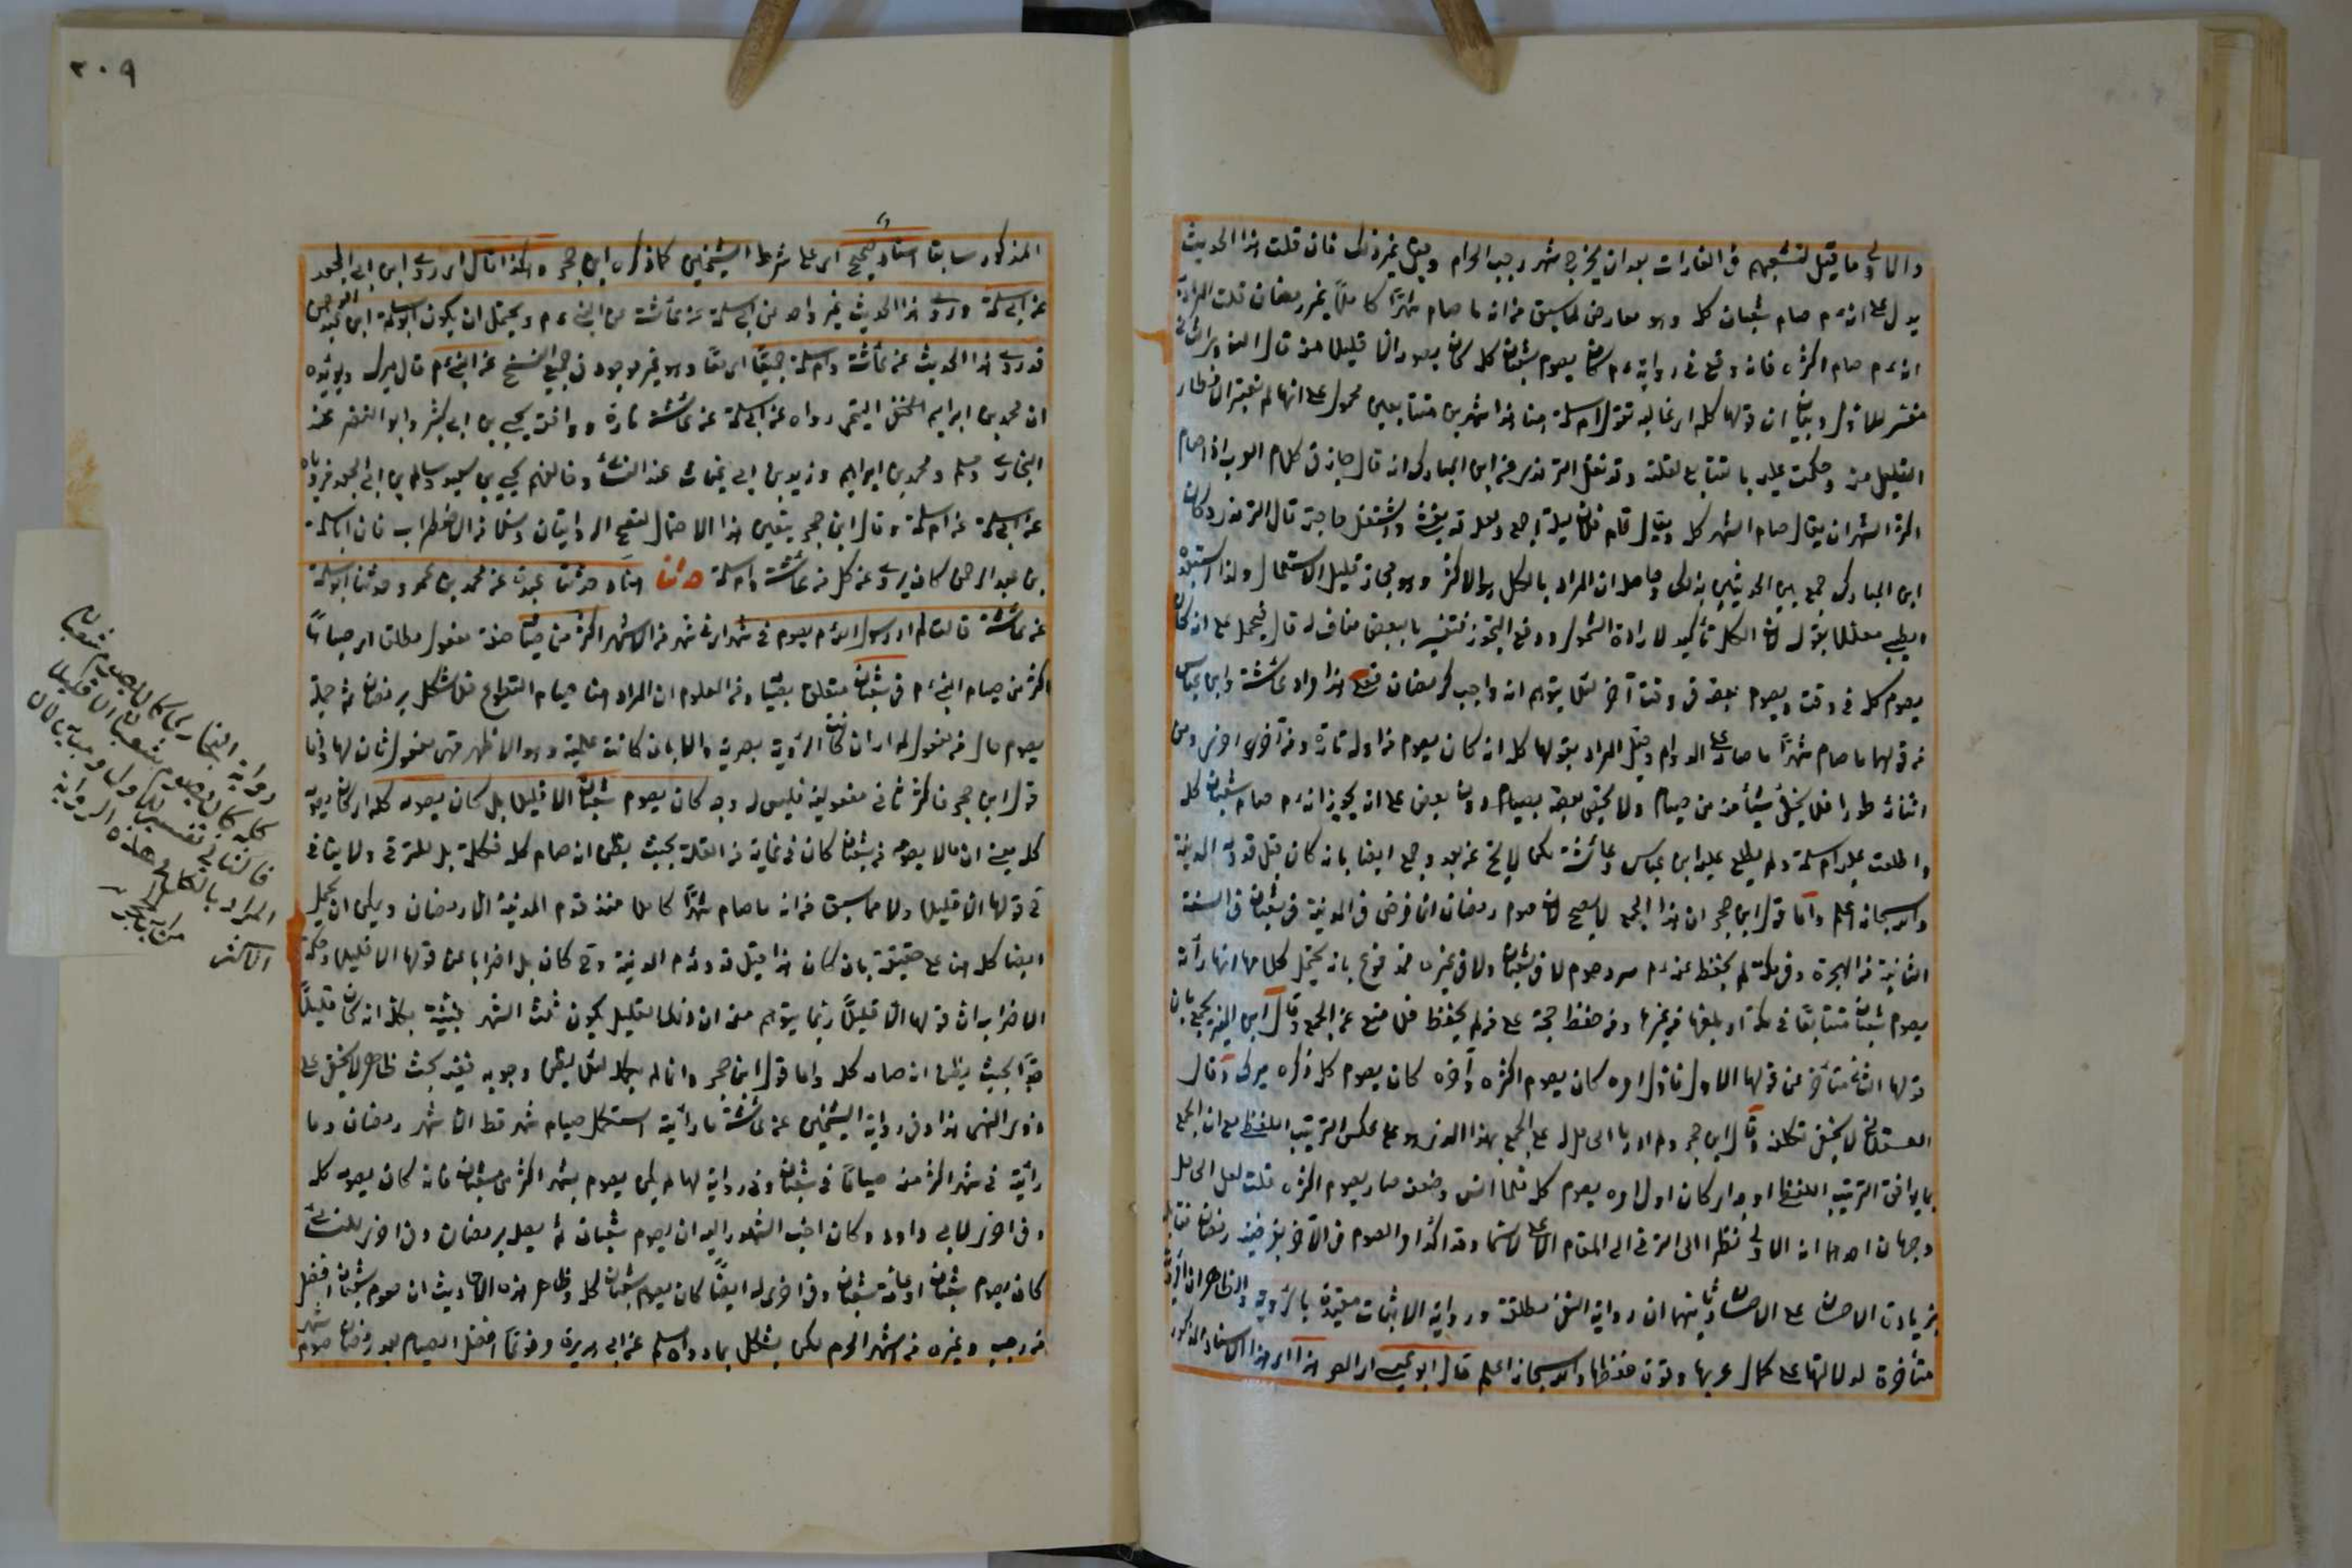 والاولى ما قيل لتشعبهم في الغارات بعد ان يخرج شهر رجب الحرام وقيل غير ذلك فان قلت هذا الحديث
يدل على انه ءم صام شعبان كله وهو معارض لما سبق من انه ما صام شهرًا كاملاً غير رمضان قلت المراد
انه ءم صام اكثره فانه وقع في رواية ءم كان يصوم شعبان كله كان يصومه الا قليلا منه قال النووي الثاني
مفسر للاول وبيان ان قولها كله اي غالبه فقول ام سلمة هنا شهرين متتابعين محمول على انها لم تعتبر الافطار
القليل منه وحكمت عليه بالتتابع لقلته وقد نقل الترمذي عن ابن المبارك انه قال جاز في كلام العرب اذا صام
اكثر الشهر ان يقال صام الشهر كله ويقال قام فلان ليلة اجمع ولعله قد تعشى واشتغل ببعض حاجته قال الترمذي كان
ابن المبارك جمع بين الحديثين بذلك وحاصله ان المراد بالكل هو الاكثر وهو مجاز قليل الاستعمال ولذا استبعده
الطيبي معللا بقوله لان الكل تأكيد لارادة الشمول ودفع التجوز فتفسيره بالبعض مناف له قال فيحمل على انه كان
يصومه كله في وقت ويصوم بعضه في وقت آخر لئلا يتوهم انه واجب كرمضان
من قولها ما صام شهرًا ما صام على الدوام وقيل المراد بقولها كله انه كان يصوم من اوله تارة ومن آخره اخرى ومن
اثنائه طورا فلا يخلي شيئًا منه من صيام ولا يخص بعضه بصيام دون بعض على انه يجوز انه ءم صام شعبان كله
واطلعت عليه ام سلمة ولم يطلع عليه ابن عباس وعائشة لكن لا يخ عن بعد وجمع ايضا بانه كان قبل قدومه المدينة
والله سبحانه اعلم واما قول ابن حجر ان هذا الجمع لا يصح لان صوم رمضان انما فرض في المدينة في شعبان في السنة
الثانية من الهجرة وفي مكة لم يحفظ عنه ءم سرد صوم لا في شعبان ولا في غيره فمدفوع بانه يحتمل كلامها انها رأته
يصوم شعبان متتابعًا في مكة او بلغها من غيرها ومن حفظ حجة على من لم يحفظ فلا منع عن الجمع وقال ابن المنير يجمع بان
قولها الثاني متأخر عن قولها الاول فاول امره كان يصوم اكثره وآخره كان يصوم كله ذكره ميرك وقال
العسقلاني لا يخفى تكلفه وقال ابن حجر ولم ادر ما الحامل له على الجمع بهذا الذي هو على عكس الترتيب اللفظي مع ان الجمع
بما يوافق الترتيب اللفظي اوجه اي كان اول امره يصوم كله فلما اسن وضعف صار يصوم اكثره قلت لعل الحامل
وجهان احدهما انه الاولى نظرا الى الترقي الى المقام الاعلى لا سيما وقد اكد امر الصوم في الآخر بفرضية رمضان فقابله
بزيادة الاحسان على الاحسان وثانيهما ان رواية النفي مطلقة ورواية الاثبات مقيدة بالرؤية والظاهر ان
متأخرة لدلالتها على كمال قربها وقوة حفظها والله سبحانه اعلم قال ابو عيسى اي المص هذا اي هذا الاسناد المذكور
٢٠٩
المذكور سابقا اسناد صحيح اي على شرط الشيخين كما ذكره ابن حجر وهكذا قال اي روى ابن ابي الجعد
عن ابي سلمة وروى هذا الحديث غير واحد عن ابي سلمة عن عائشة عن النبي ءم ويحتمل ان يكون ابو سلمة ابن عبد الرحمن
قد روى هذا الحديث عن عائشة وام سلمة جميعًا اي معًا وهو غير موجود في جميع النسخ عن النبي ءم قال ميرك ويؤيده
ان محمد بن ابراهيم التيمي رواه عن ابي سلمة عن عائشة تارة ووافقه يحيى بن ابي كثير وابو النضر عند
البخاري ومسلم ومحمد بن ابراهيم وزيد بن ابي عتاب عند النسائي وخالفهم يحيى بن سعيد وسالم بن ابي الجعد فروياه
عن ابي سلمة عن ام سلمة وقال ابن حجر يتعين هذا الاحتمال لتصح الروايتان وسلما من الاضطراب فان ابا سلمة
بن عبد الرحمن كان يروي عن كل من عائشة وام سلمة حدثنا هناد حدثنا عبدة عن محمد بن عمرو حدثنا ابو سلمة
عن عائشة قالت لم ار رسول الله ءم يصوم في شهر اي في شهر من الاشهر اكثر من صيامه صفة مفعول مطلق اي صياما
اكثر من صيام النبي ءم في شعبان متعلق بصيامه ومن المعلوم ان المراد هنا صيام التطوع فلا يشكل برمضان ثم جملة
يصوم حال من مفعول لم ار ان كانت الرؤية بصرية والا بان كانت علمية وهو الاظهر فهي مفعول ثان لها واما
قول ابن حجر فاكثر ثاني مفعوليه فليس له وجه كان يصوم شعبان الا قليلا بل كان يصومه كله اي كان يصوم
كله يعني ان ما لا يصومه من شعبان كان في غاية من القلة بحيث يظن انه صام كله فكلمة بل للترقي ولا ينافي
في قولها الا قليلا ولا ما سبق من انه ما صام شهرًا كاملا منذ قدم المدينة الا رمضان ويمكن ان يحمل
ايضا كله هنا على حقيقته بان كان هذا قبل قدومه ءم المدينة وح كان بل اضرابا عن قولها الا قليلا وحكمة
الاضراب ان قولها الا قليلًا ربما يتوهم منه ان ذلك القليل يكون ثلث الشهر فبينت بكله انه كان قليلًا
جدًا بحيث يظن انه صامه كله واما قول ابن حجر وانما لم يكمله لئلا يظن وجوبه ففيه بحث ظاهر لا يخفى على
ذوي النهى هذا وفي رواية الشيخين عن عائشة ما رأيته استكمل صيام شهر قط الا شهر رمضان وما
رأيته في شهر اكثر منه صياما في شعبان وفي رواية لهما لم يكن يصوم شهرا اكثر من شعبان فانه كان يصومه كله
وفي اخرى لابي داود وكان احب الشهور اليه ان يصوم شعبان ثم يصله برمضان وفي اخرى للنسائي
كان يصوم شعبان او عامة شعبان وفي اخرى له ايضًا كان يصوم شعبان كله وظاهر هذه الاحاديث ان صوم شعبان افضل
من رجب وغيره من الاشهر الحرم لكن يشكل بما رواه مسلم عن ابي هريرة مرفوعًا افضل الصيام بعد رمضان صوم شهر
رواية البخاري كان يصوم شعبان
كله كان يصوم شعبان الا قليلا
فالثاني تفسير للاول وبيان ان
المراد بالكل في هذه الرواية
الاكثر